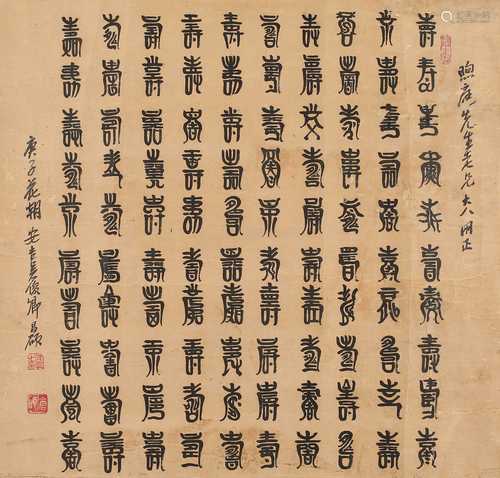 煦庭先生老先大人明正
壽壽壽壽壽壽壽壽壽壽
壽壽壽壽壽壽壽壽壽壽
壽壽壽壽壽壽壽壽壽壽
壽壽壽壽壽壽壽壽壽壽
壽壽壽壽壽壽壽壽壽壽
壽壽壽壽壽壽壽壽壽壽
壽壽壽壽壽壽壽壽壽壽
壽壽壽壽壽壽壽壽壽壽
壽壽壽壽壽壽壽壽壽壽
壽壽壽壽壽壽壽壽壽壽
庚子花朝安吉吳俊卿昌碩